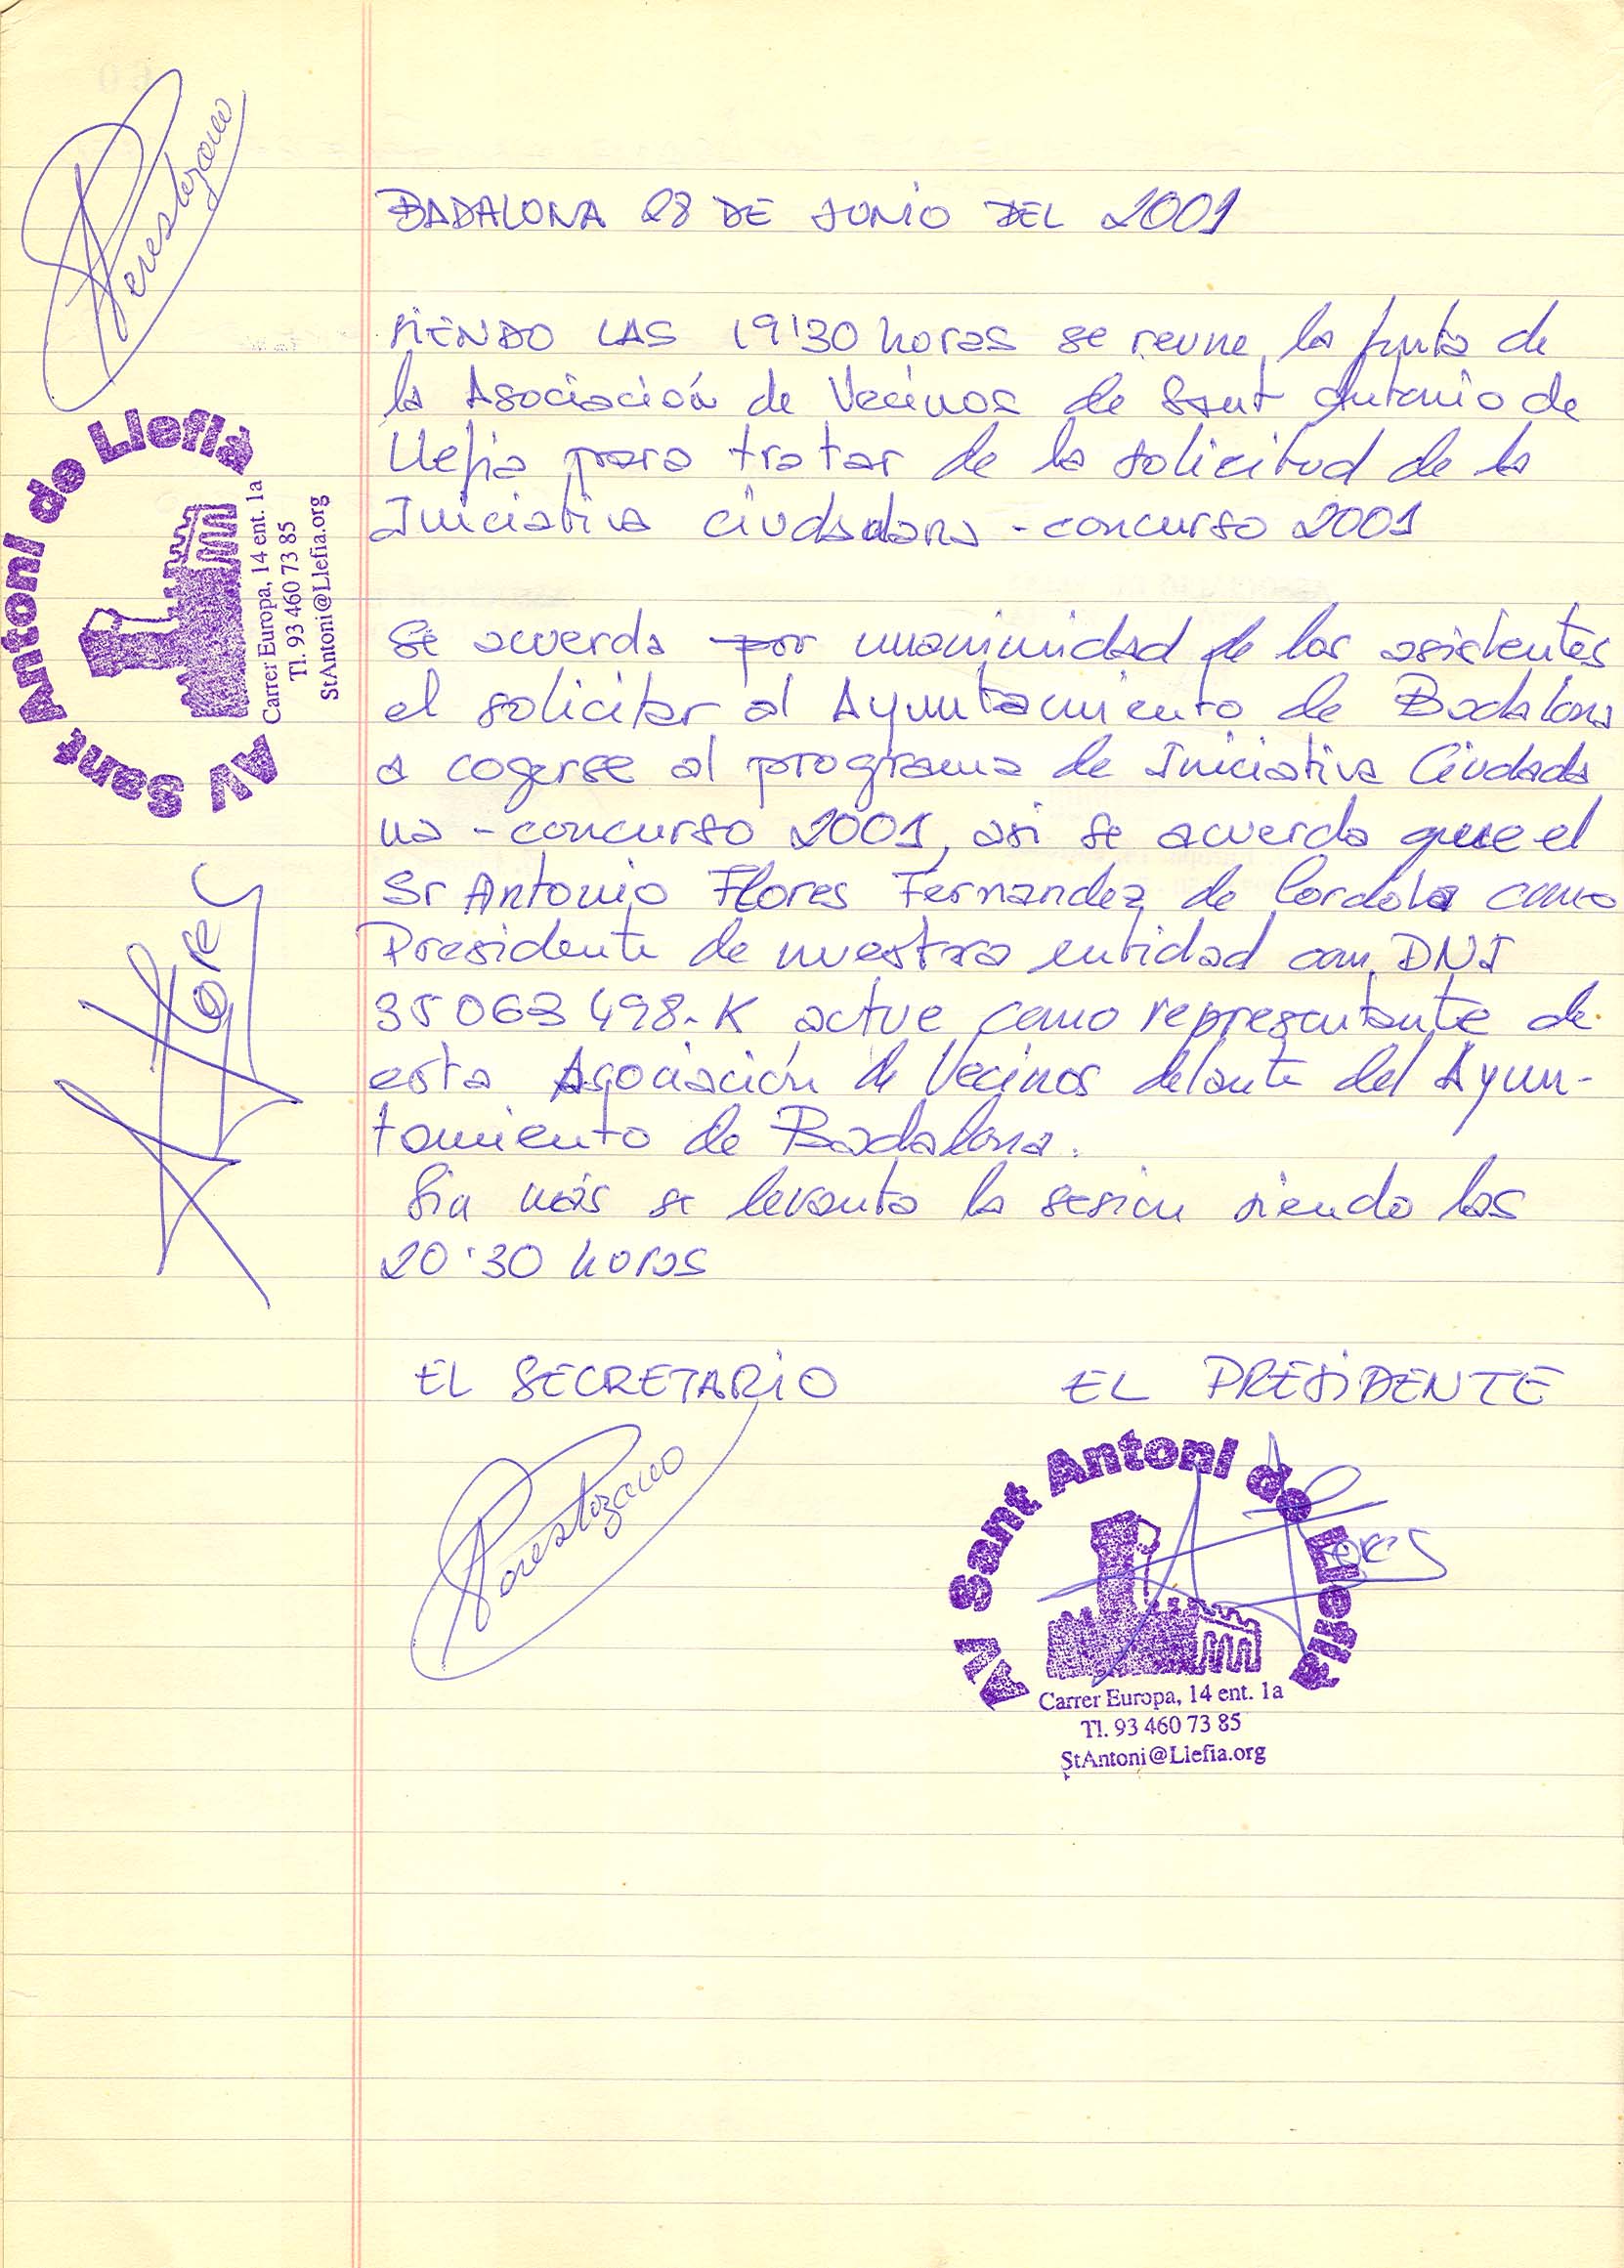 BADALONA 28 DE JUNIO DEL 2001
SIENDO LAS 19'30 horas se reune la junta de
la Asociación de Vecinos de Sant Antonio de
Llefia para tratar de la solicitud de la
Iniciativa ciudadana - concurso 2001
Se acuerda por unanimidad de los asistentes
el solicitar al Ayuntamiento de Badalona
a cogerse al programa de Iniciativa Ciudada
na - concurso 2001, asi se acuerda que el
Sr Antonio Flores Fernandez de Cordoba como
Presidente de nuestra entidad con DNI
35063498-K actue como representante de
esta Asociación de Vecinos delante del Ayun-
tamiento de Badalona.
Sin más se levanta la sesion siendo las
20'30 horas
EL SECRETARIO EL PRESIDENTE
AV Sant Antoni de Llefià
Carrer Europa, 14 ent. 1a
Tl. 93 460 73 85
StAntoni@Llefia.org
AV Sant Antoni de Llefià
Carrer Europa, 14 ent. 1a
Tl. 93 460 73 85
StAntoni@Llefia.org